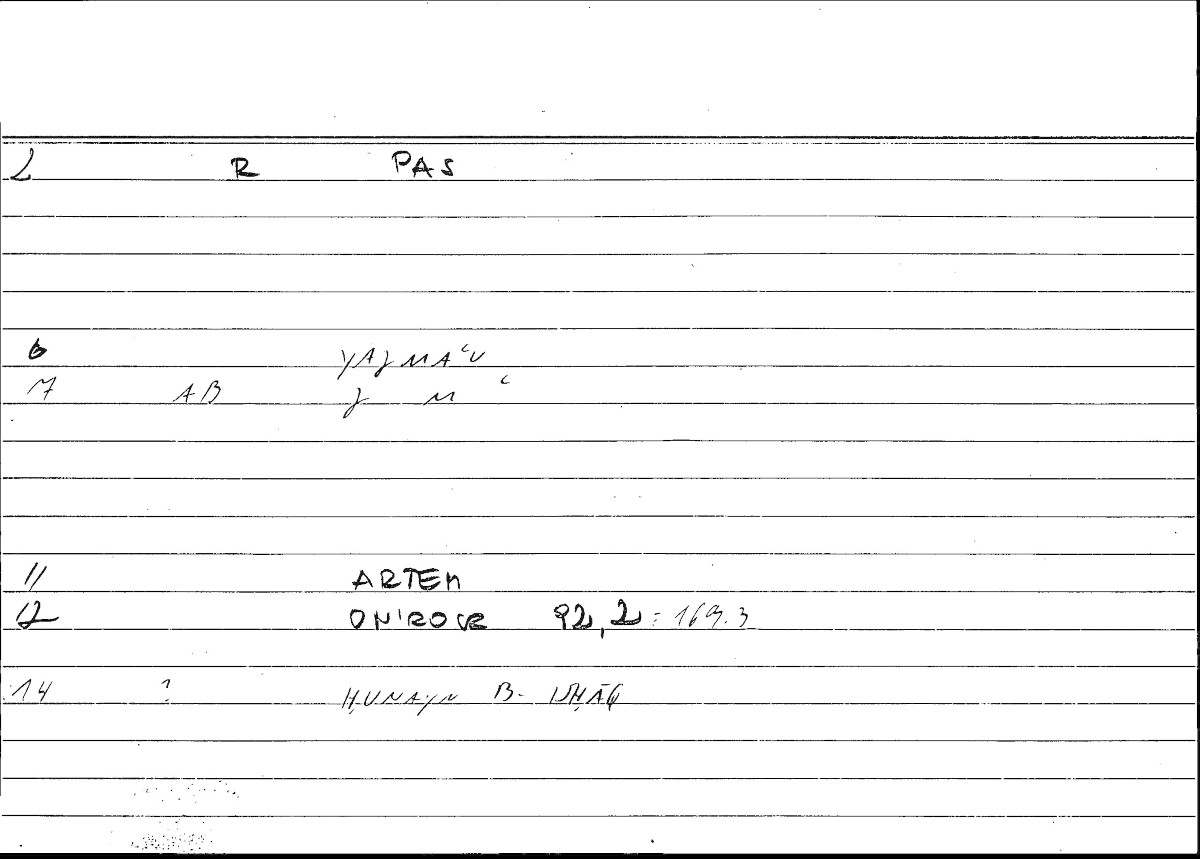 2 R PAS
6 YAJMAʿU
7 AB J M ʿ
11 ARTEM
12 ONIROCR 92,2 = 169.3
14 ? ḤUNAYN B. ISḤĀQ